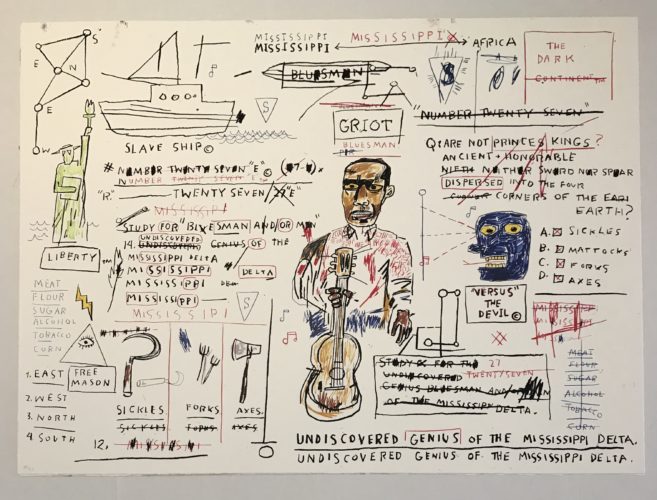 MISSISSIPPI
MISSISSIPPI
MISSISSIPPI
AFRICA
THE
DARK
CONTINENT TM
S
E
N
E
W
S
$
BLUESMEN
"NUMBER TWENTY SEVEN"
GRIOT
BLUESMAN
SLAVE SHIP©
S
# NUMBER TWENTY SEVEN "E" ©
NUMBER TWENTY SEVEN
"R."
TWENTY SEVEN
MISSISSIPI
STUDY FOR BLUESMAN AND/OR MEN"
UNDISCOVERED
14. UNDISCOVERED GENIUS OF THE
MISSISSIPPI DELTA
MISSISSIPPI
DELTA
MISSISSIPPI
MISSISSIPPI
MISSISSIPI
S
Q: ARE NOT PRINCES KINGS?
ANCIENT + HONORABLE
NIETH NEITHER SWORD NOR SPEAR
DISPERSED INTO THE FOUR
CORNERS OF THE EARI
EARTH?
A. SICKLES
B. MATTOCKS
C. FORKS
D. AXES
LIBERTY TM
MEAT
FLOUR
SUGAR
ALCOHOL
TOBACCO
CORN
1. EAST
2. WEST
3. NORTH
4. SOUTH
FREE
MASON
SICKLES
FORKS
AXES.
SICKLES
FORKS
AXES
12.
"VERSUS"
THE
DEVIL©
MISSISSIPPI
STUDY FOR THE 27
UNDISCOVERED TWENTY/SEVEN
GENIUS BLUESMAN AND/OR MEN
OF THE MISSISSIPPI DELTA.
MEAT
FLOUR
SUGAR
ALCOHOL
TOBACCO
CORN
UNDISCOVERED GENIUS OF THE MISSISSIPPI DELTA.
UNDISCOVERED GENIUS OF THE MISSISSIPPI DELTA.